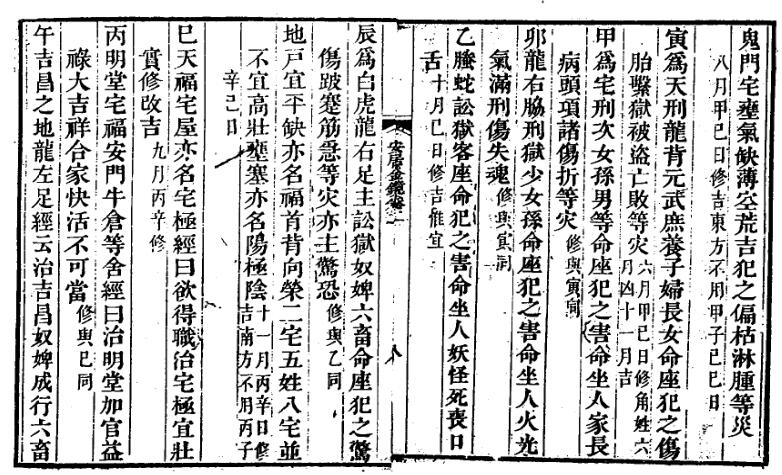 鬼門宅壅氣缺薄空荒吉犯之偏枯淋腫等災
八月甲巳日修吉東方不用甲子巳巳日
寅爲天刑龍背元武庶養子婦長女命座犯之傷
胎繫獄被盜亡敗等灾六月甲巳日修角姓六
月四十一月吉
甲爲宅刑次女孫男等命座犯之害命坐人家長
病頭項諸傷折等灾修與寅同
卯龍右脇刑獄少女孫命座犯之害命坐人火光
氣滿刑傷失魂修與寅同
乙螣蛇訟獄客座命犯之害命坐人妖怪死喪口
舌十月巳日修吉惟宜
安居金鏡卷一
八
辰爲白虎龍右足主訟獄奴婢六畜命座犯之驚
傷跛蹇筋急等灾亦主驚恐修與乙同
地戸宜平缺亦名福首背向榮二宅五姓八宅並
不宜高壯壅塞亦名陽極陰十一月丙辛日修
吉南方不用丙子
辛巳日
巳天福宅屋亦名宅極經曰欲得職治宅極宜壯
實修改吉九月丙辛修
丙明堂宅福安門牛倉等舍經曰治明堂加官益
祿大吉祥合家快活不可當修與巳同
午吉昌之地龍左足經云治吉昌奴婢成行六畜